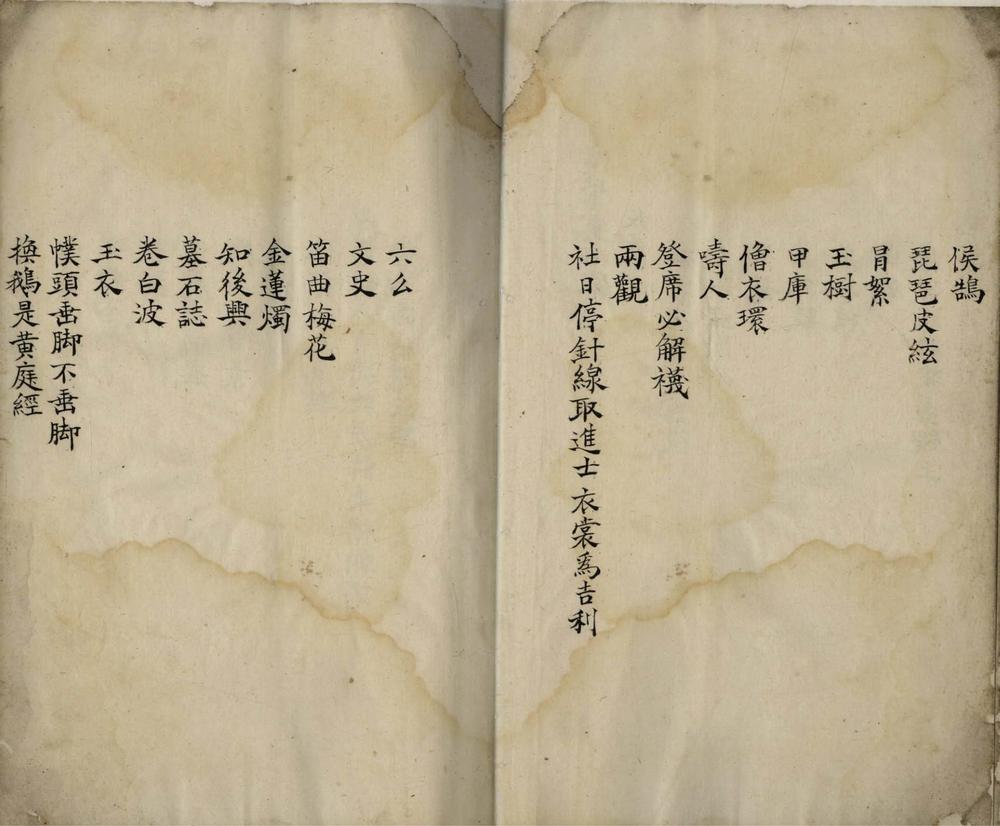 侯鵠
琵琶皮絃
冐絮
玉樹
甲庫
僧衣環
嚋人
登席必解襪
兩觀
社日停針線取進士衣裳爲吉利
六么
文史
笛曲梅花
金蓮燭
知後典
墓石誌
卷白波
玉衣
幞頭垂脚不垂脚
換鵝是黄庭經